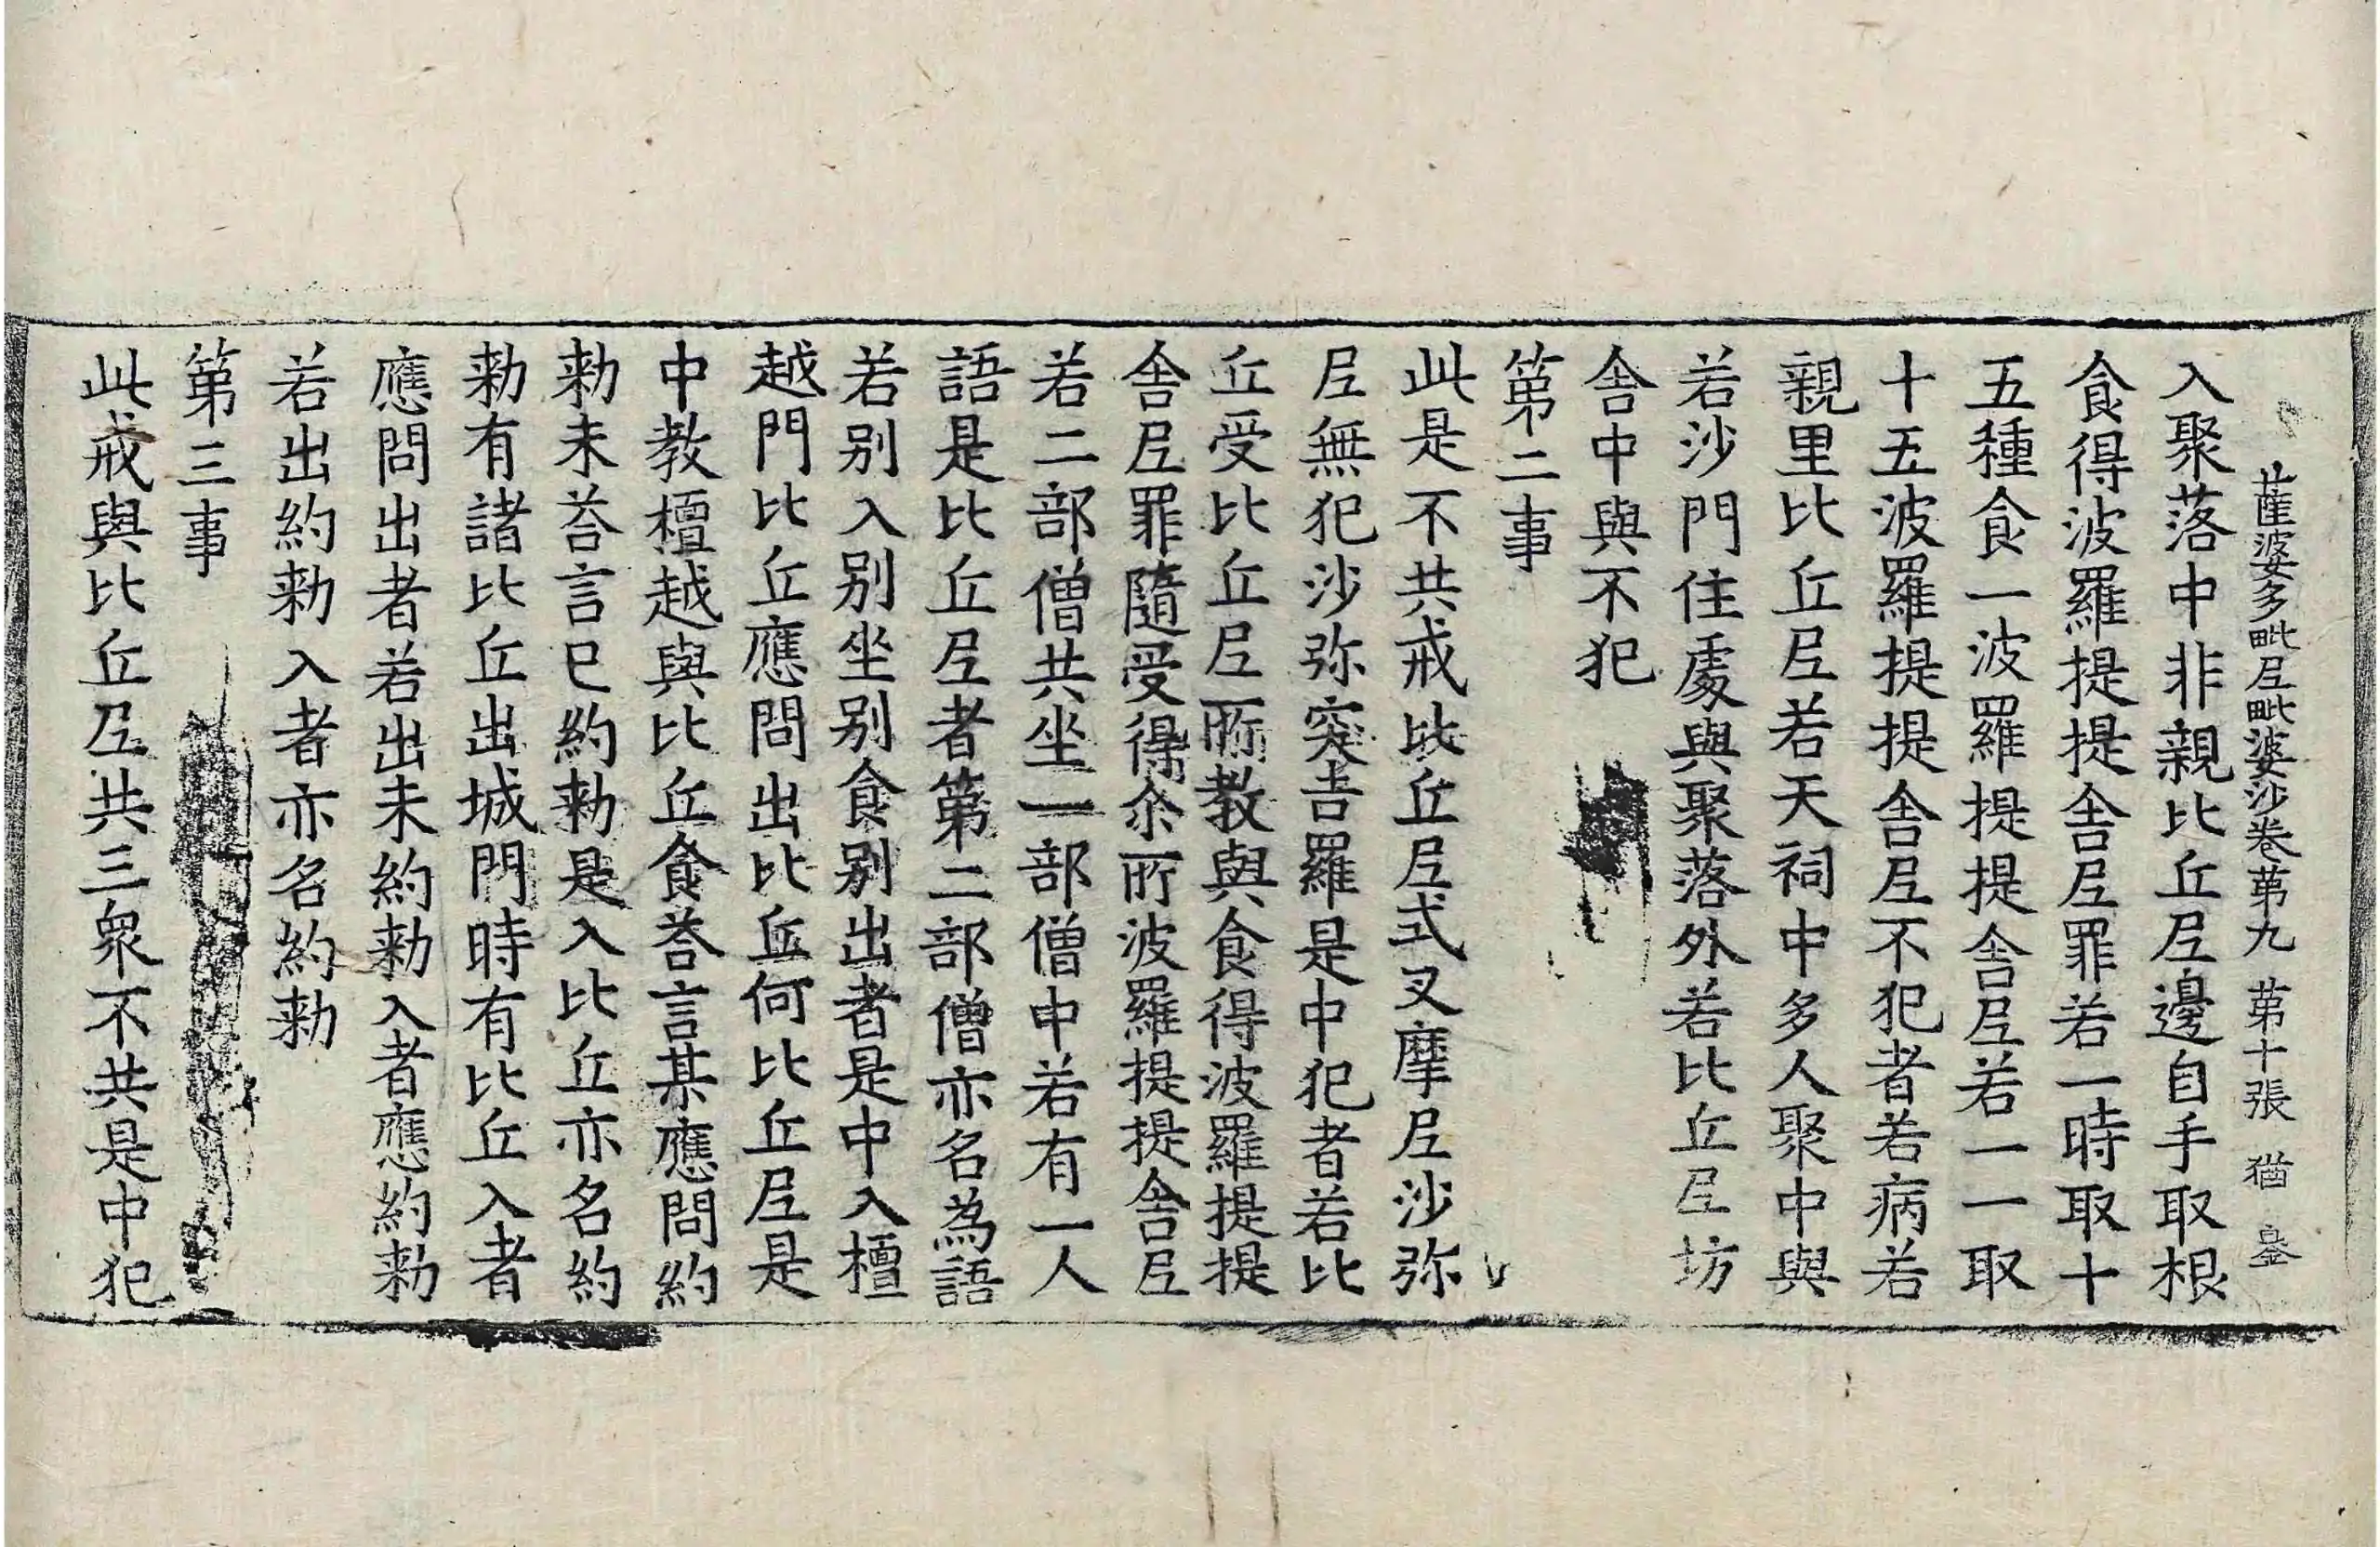 薩婆多毗尼毗婆沙卷第九 第十張 猶
入聚落中非親比丘尼邊自手取根
食得波羅提提舍尼罪若一時取十
五種食一波羅提提舍尼若一一取
十五波羅提提舍尼不犯者若病若
親里比丘尼若天祠中多人聚中與
若沙門住處與聚落外若比丘尼坊
舍中與不犯
第二事
此是不共戒比丘尼式叉摩尼沙弥
尼無犯沙弥突吉羅是中犯者若比
丘受比丘尼所教與食得波羅提提
舍尼罪隨受得尒所波羅提提舍尼
若二部僧共坐一部僧中若有一人
語是比丘尼者第二部僧亦名為語
若別入別坐別食別出者是中入檀
越門比丘應問出比丘何比丘尼是
中教檀越與比丘食荅言某應問約
勑未荅言已約勑是入比丘亦名約
勑有諸比丘出城門時有比丘入者
應問出者若出未約勑入者應約勑
若出約勑入者亦名約勑
第三事
此戒與比丘尼共三衆不共是中犯